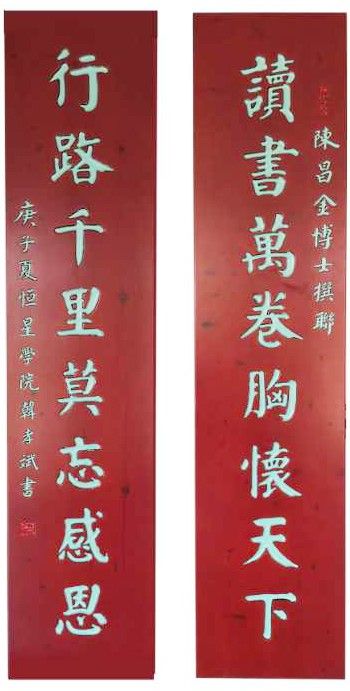 讀書萬卷胸懷天下
陳昌金博士撰聯
行路千里莫忘感恩
庚子夏恒星學院韓孝斌書